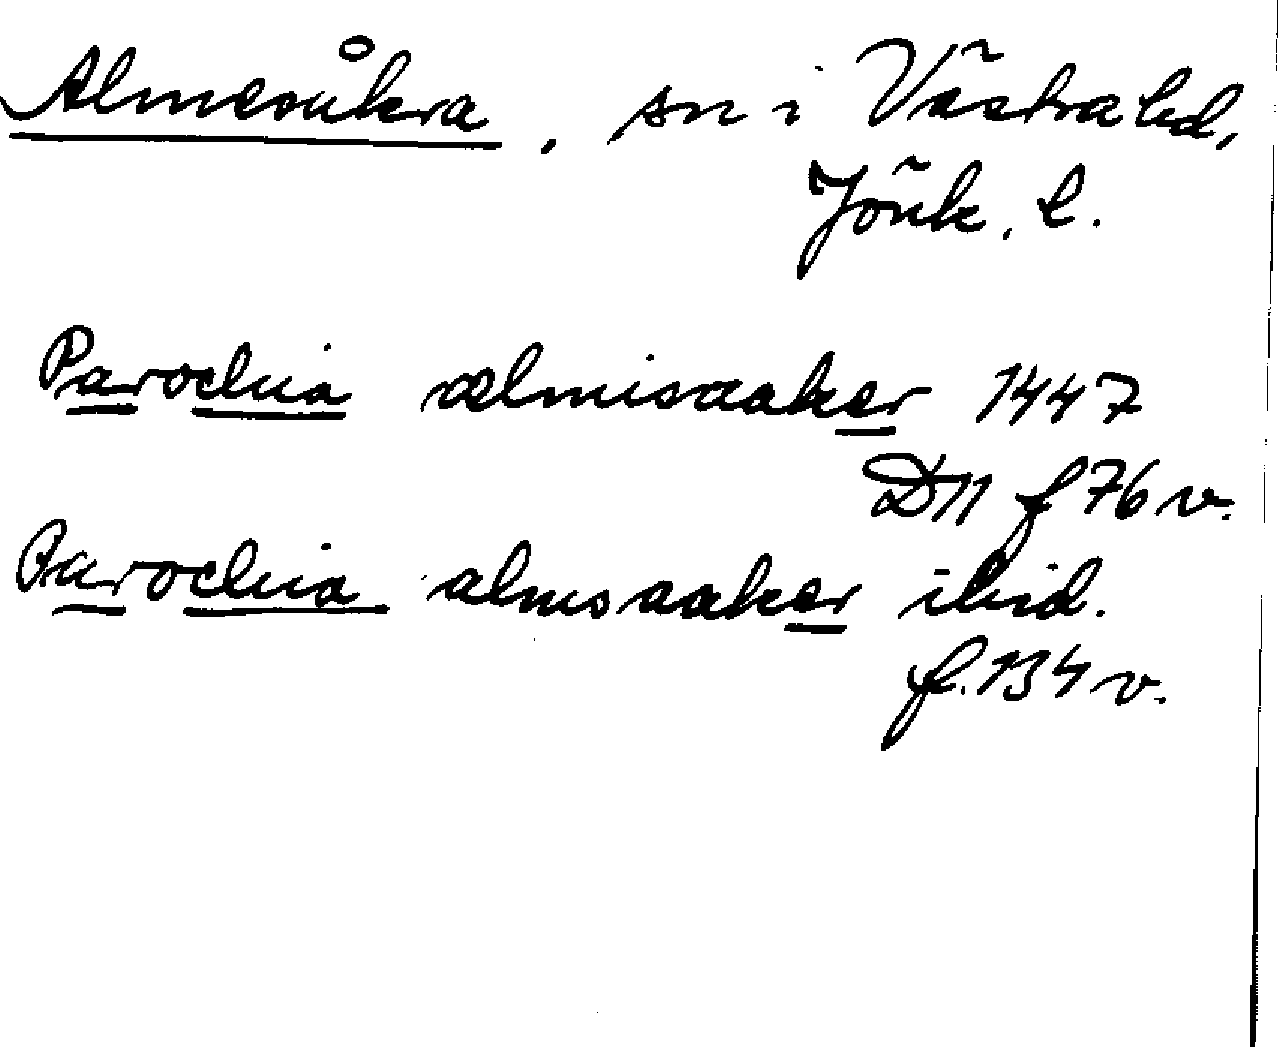 Almesåkra, sn i Västra hd,
Jönk. l.
Parochia ælmisaaker 1447
D11 f 76 v.
Parochia almsaaker ibid.
f. 134 v.